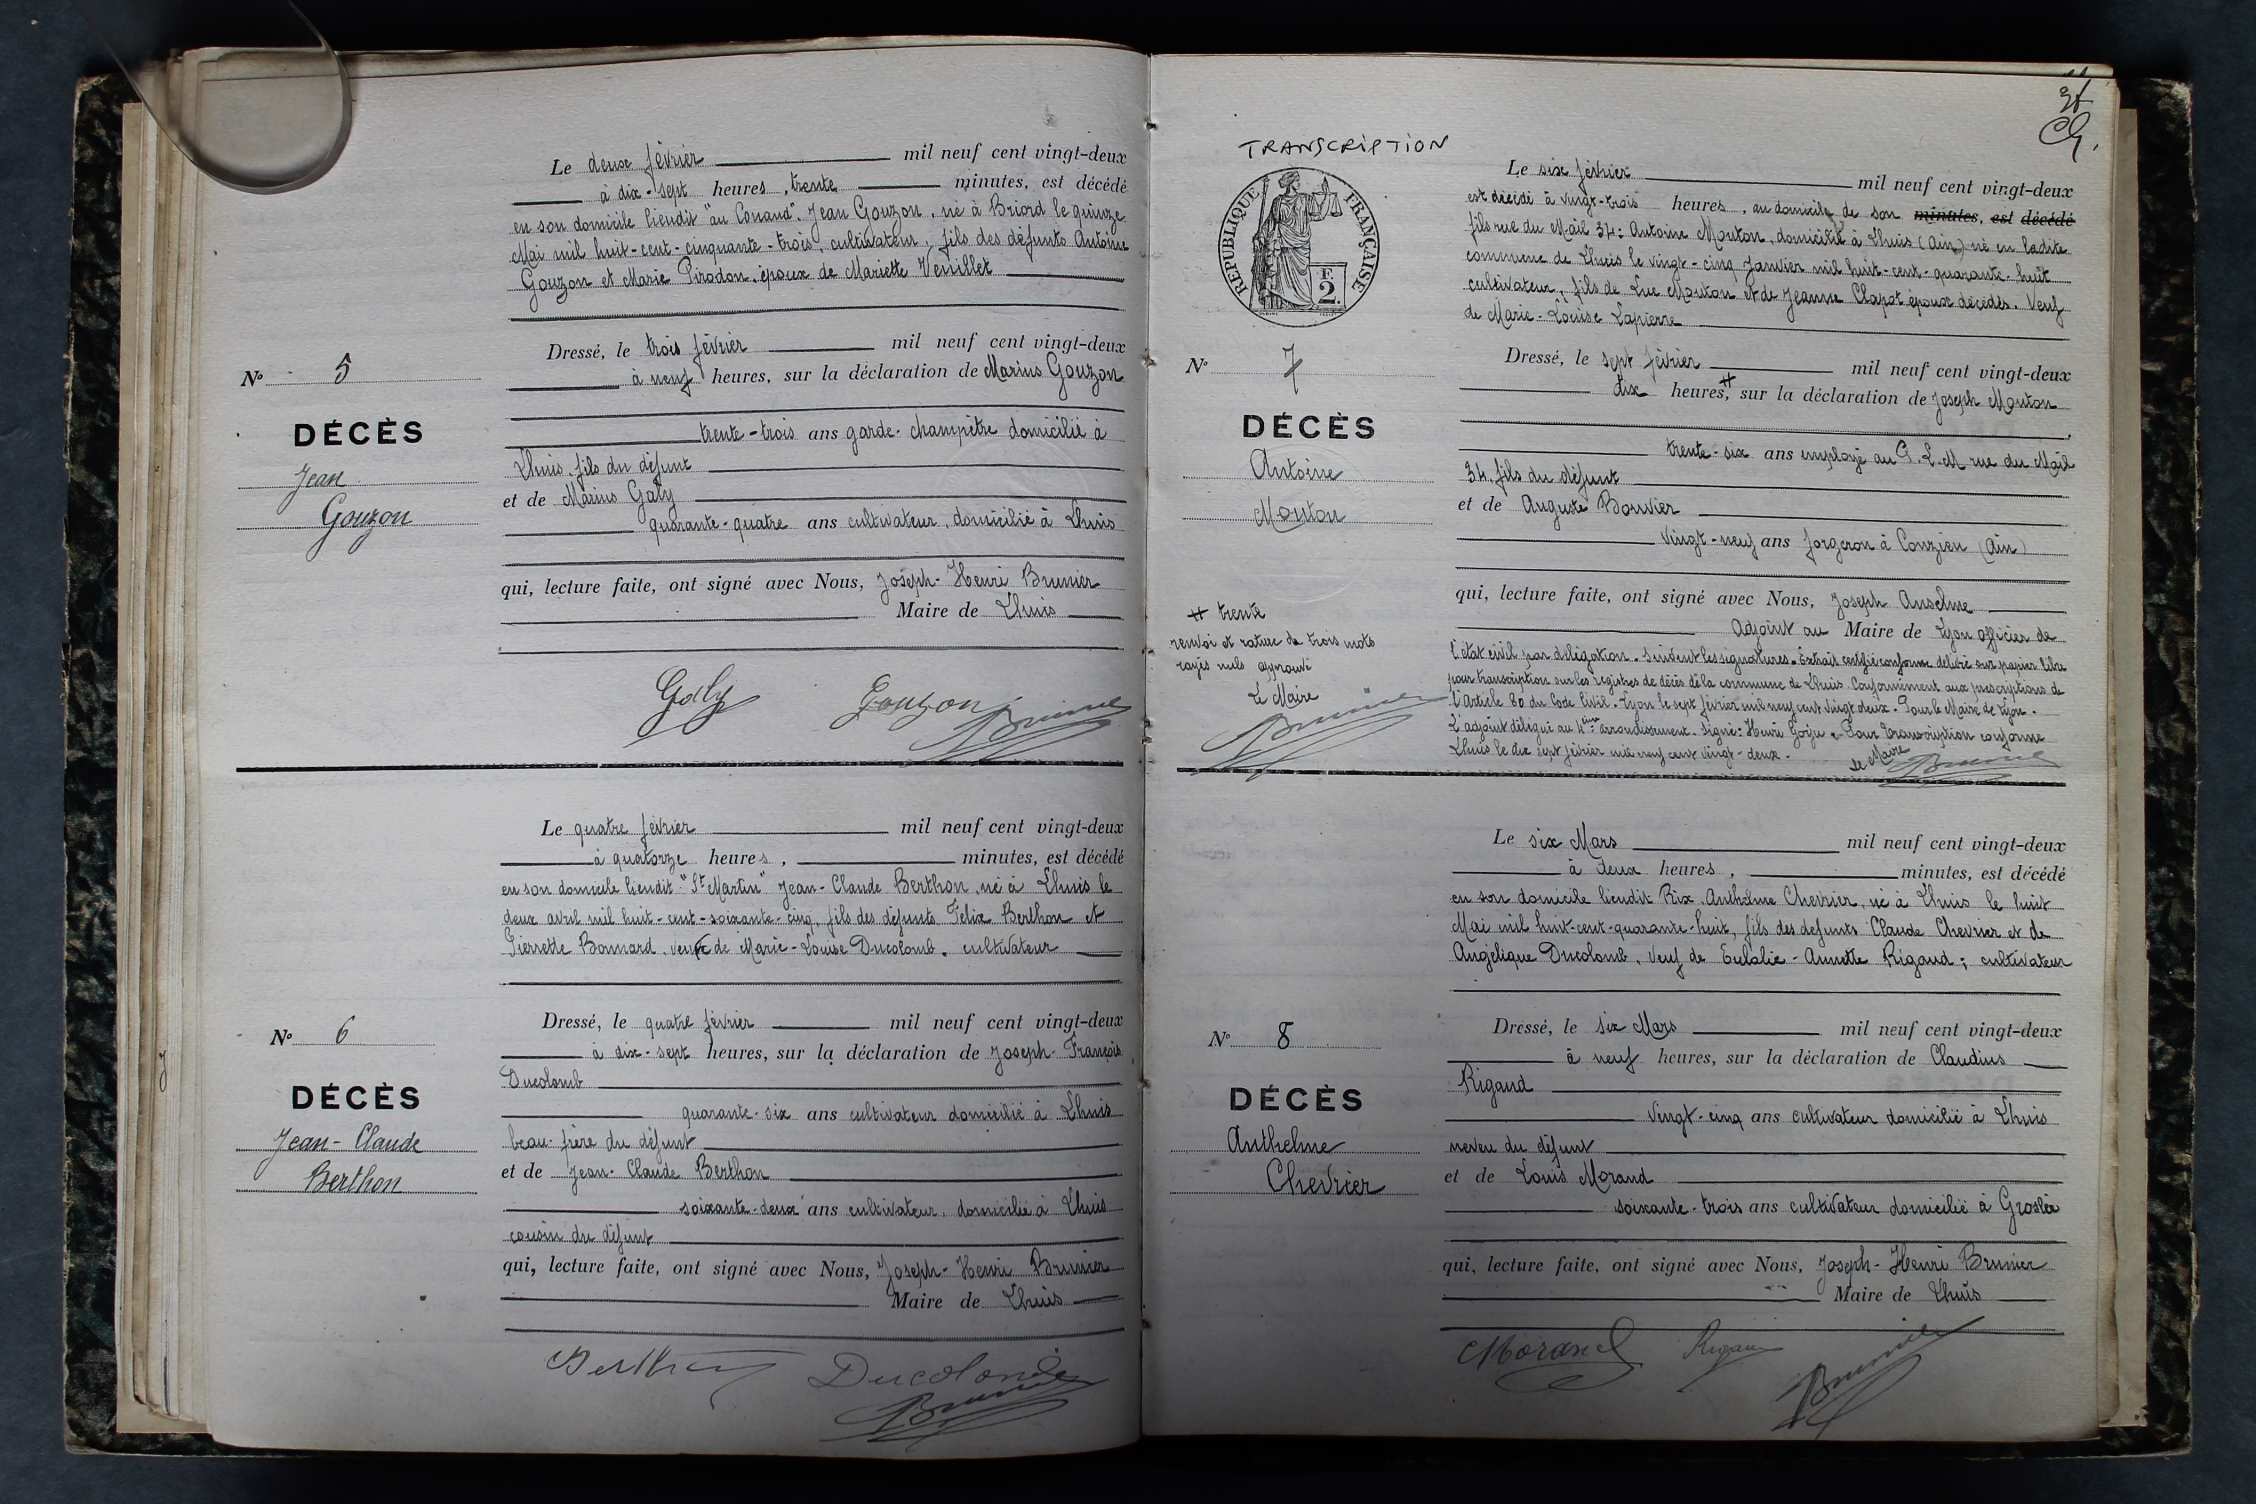 Le deux février mil neuf cent vingt-deux
à dix-sept heures, trente minutes, est décédé
en son domicile lieudit "au Conand". Jean Gouzon, né à Briord le quinze
Mai mil huit-cent-cinquante-trois, cultivateur, fils des défunts Antoine
Gouzon et Marie Pirodon, époux de Mariette Veuillet
Nº 5
DÉCÈS
Jean
Gouzon
Dressé, le trois février mil neuf cent vingt-deux
à neuf heures, sur la déclaration de Marius Gouzon
trente-trois ans garde-champêtre domicilié à
Lhuis, fils du défunt
et de Marius Galy
quarante-quatre ans cultivateur, domicilié à Lhuis
qui, lecture faite, ont signé avec Nous, Joseph-Henri Brunier
Maire de Lhuis
Galy Gouzon Brunier
Le quatre février mil neuf cent vingt-deux
à quatorze heures, minutes, est décédé
en son domicile lieudit "St Martin" Jean-Claude Berthon, né à Lhuis le
deux avril mil huit-cent-soixante-cinq, fils des défunts Félix Berthon et
Pierrette Bonnard, veuf de Marie-Louise Ducolomb. cultivateur
Nº 6
DÉCÈS
Jean-Claude
Berthon
Dressé, le quatre février mil neuf cent vingt-deux
à dix-sept heures, sur la déclaration de Joseph-François
Ducolomb
quarante-six ans cultivateur domicilié à Lhuis
beau-frère du défunt
et de Jean-Claude Berthon
soixante-deux ans cultivateur, domicilié à Lhuis
cousin du défunt
qui, lecture faite, ont signé avec Nous, Joseph-Henri Brunier
Maire de Lhuis
Berthon Ducolomb
Brunier
TRANSCRIPTION
RÉPUBLIQUE FRANÇAISE
F.
2.
Le six février mil neuf cent vingt-deux
est décédé à vingt-trois heures, au domicile de son minutes, est décédé
fils rue du Mail 34: Antoine Mouton, domicilié à Lhuis (Ain) né en ladite
commune de Lhuis le vingt-cinq Janvier mil huit-cent-quarante-huit
cultivateur, fils de Luc Mouton et de Jeanne Clapot époux décédés. Veuf
de Marie-Louise Lapierre
Nº 7
DÉCÈS
Antoine
Mouton
Dressé, le sept février mil neuf cent vingt-deux
dix heures, # sur la déclaration de Joseph Mouton
trente-six ans employé au P.L.M rue du Mail
34, fils du défunt
et de Auguste Bouvier
vingt-neuf ans forgeron à Conzieu (Ain)
qui, lecture faite, ont signé avec Nous, Joseph Anselme
Adjoint au Maire de Lyon officier de
l'état civil par délégation. Suivent les signatures. Extrait certifié conforme délivré sur papier libre
pour transcription sur les registres de décès de la commune de Lhuis. Conformément aux prescriptions de
l'Article 80 du Code Civil. Lyon le sept février mil neuf cent vingt deux. Pour le Maire de Lyon.
L'adjoint délégué au 4ème arrondissement. Signé: Henri Gorju. Pour transcription conforme
Lhuis le dix sept février mil neuf cent vingt-deux. Le Maire
Brunier
# trente
renvoi et rature de trois mots
rayés nuls approuvé
Le Maire
Brunier
Le six Mars mil neuf cent vingt-deux
à deux heures, minutes, est décédé
en son domicile lieudit Rix, Anthelme Chevrier, né à Lhuis le huit
Mai mil huit-cent-quarante-huit, fils des défunts Claude Chevrier et de
Angélique Ducolomb, Veuf de Eulalie-Annette Rigaud; cultivateur
Nº 8
DÉCÈS
Anthelme
Chevrier
Dressé, le six Mars mil neuf cent vingt-deux
à neuf heures, sur la déclaration de Claudius
Rigaud
vingt-cinq ans cultivateur domicilié à Lhuis
neveu du défunt
et de Louis Morand
soixante-trois ans cultivateur domicilié à Groslée
qui, lecture faite, ont signé avec Nous, Joseph-Henri Brunier
Maire de Lhuis
Morand Rigaud Brunier